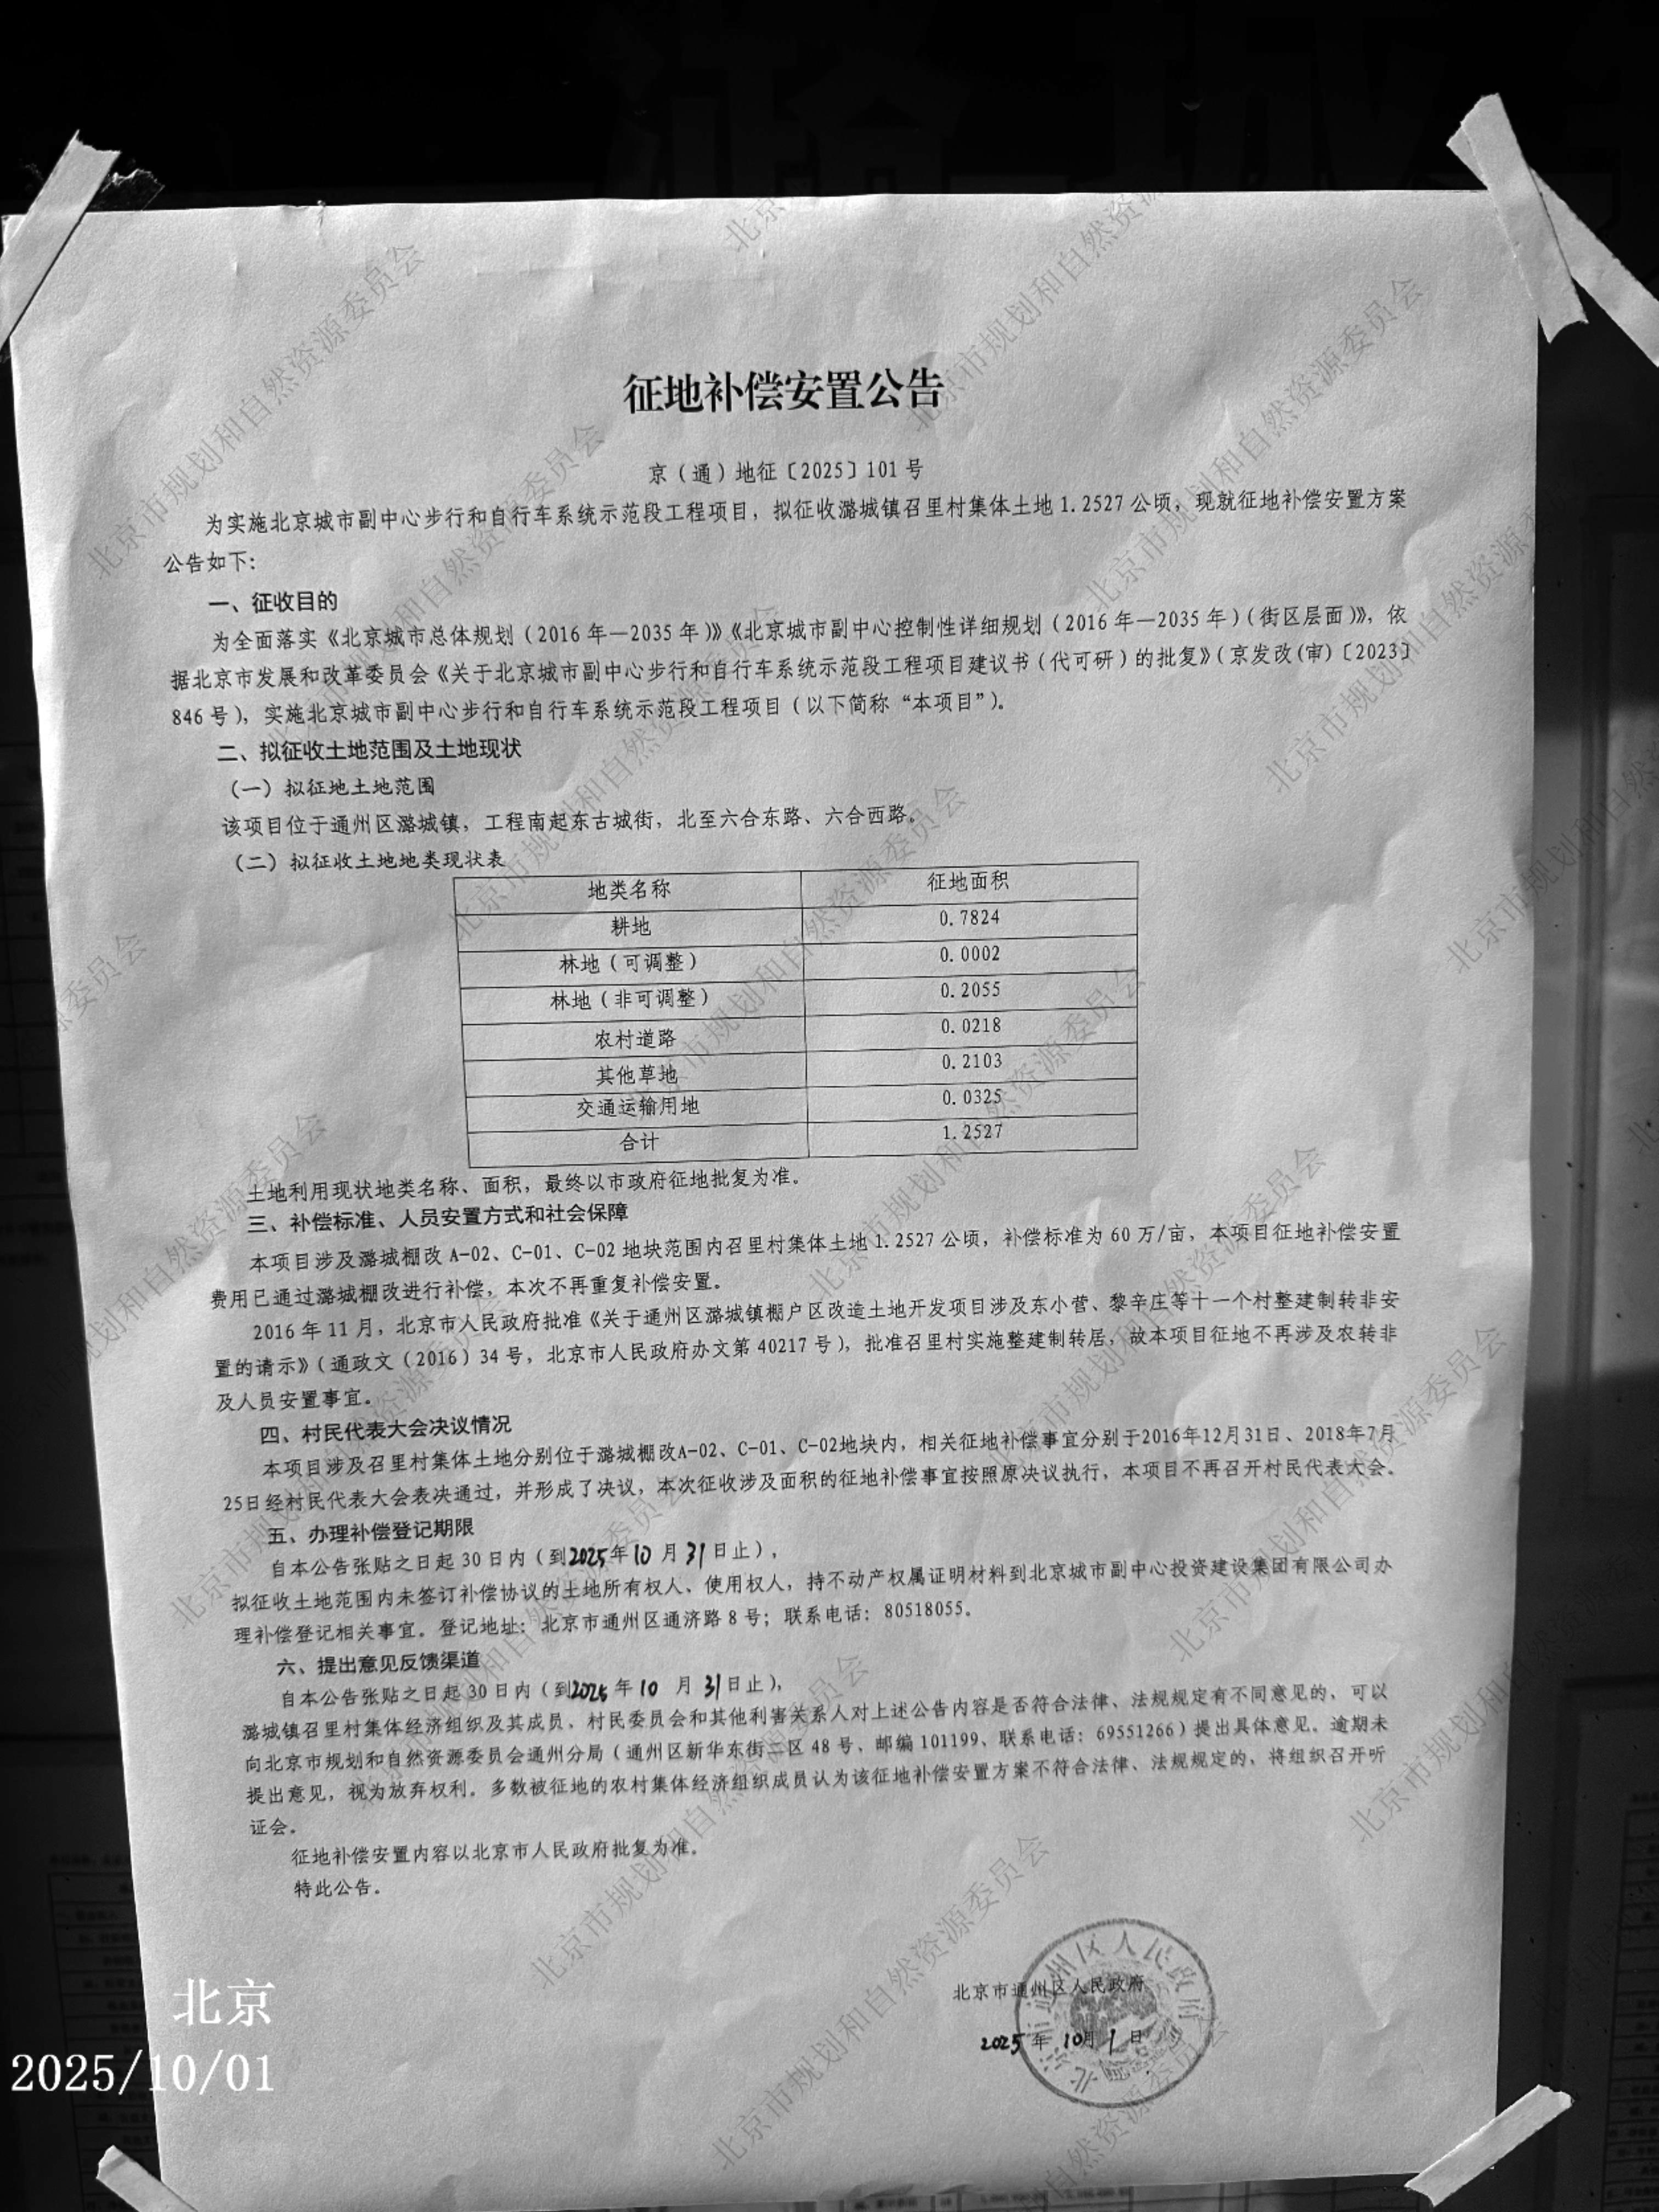 征地补偿安置公告
京（通）地征〔2025〕101号
为实施北京城市副中心步行和自行车系统示范段工程项目，拟征收潞城镇召里村集体土地1.2527公顷，现就征地补偿安置方案
公告如下：
一、征收目的
为全面落实《北京城市总体规划（2016年—2035年）》《北京城市副中心控制性详细规划（2016年—2035年）（街区层面）》，依
据北京市发展和改革委员会《关于北京城市副中心步行和自行车系统示范段工程项目建议书（代可研）的批复》（京发改(审)〔2023〕
846号），实施北京城市副中心步行和自行车系统示范段工程项目（以下简称“本项目”）。
二、拟征收土地范围及土地现状
（一）拟征地土地范围
该项目位于通州区潞城镇，工程南起东古城街，北至六合东路、六合西路。
（二）拟征收土地地类现状表
地类名称 征地面积
耕地 0.7824
林地（可调整） 0.0002
林地（非可调整） 0.2055
农村道路 0.0218
其他草地 0.2103
交通运输用地 0.0325
合计 1.2527
土地利用现状地类名称、面积，最终以市政府征地批复为准。
三、补偿标准、人员安置方式和社会保障
本项目涉及潞城棚改A-02、C-01、C-02地块范围内召里村集体土地1.2527公顷，补偿标准为60万/亩，本项目征地补偿安置
费用已通过潞城棚改进行补偿，本次不再重复补偿安置。
2016年11月，北京市人民政府批准《关于通州区潞城镇棚户区改造土地开发项目涉及东小营、黎辛庄等十一个村整建制转非安
置的请示》（通政文（2016）34号，北京市人民政府办文第40217号），批准召里村实施整建制转居，故本项目征地不再涉及农转非
及人员安置事宜。
四、村民代表大会决议情况
本项目涉及召里村集体土地分别位于潞城棚改A-02、C-01、C-02地块内，相关征地补偿事宜分别于2016年12月31日、2018年7月
25日经村民代表大会表决通过，并形成了决议，本次征收涉及面积的征地补偿事宜按照原决议执行，本项目不再召开村民代表大会。
五、办理补偿登记期限
自本公告张贴之日起30日内（到2025年10月31日止），
拟征收土地范围内未签订补偿协议的土地所有权人、使用权人，持不动产权属证明材料到北京城市副中心投资建设集团有限公司办
理补偿登记相关事宜。登记地址：北京市通州区通济路8号；联系电话：80518055。
六、提出意见反馈渠道
自本公告张贴之日起30日内（到2025年10月31日止），
潞城镇召里村集体经济组织及其成员、村民委员会和其他利害关系人对上述公告内容是否符合法律、法规规定有不同意见的，可以
向北京市规划和自然资源委员会通州分局（通州区新华东街二区48号，邮编101199、联系电话：69551266）提出具体意见。逾期未
提出意见，视为放弃权利。多数被征地的农村集体经济组织成员认为该征地补偿安置方案不符合法律、法规规定的，将组织召开听
证会。
征地补偿安置内容以北京市人民政府批复为准。
特此公告。
北京市通州区人民政府
2025年10月1日
北京
2025/10/01
北京市规划和自然资源委员会